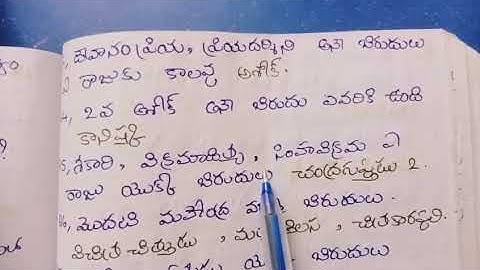 దేవానం ప్రియ, ప్రియదర్శిని అనే బిరుదులు
రాజుకు కాలవు అశోక్.
2వ అశోక్ అనే బిరుదు ఎవరికి ఉంది
కానిష్క
5, శకారి, విక్రమాదిత్య, సింహవిక్రమ ఏ
రాజు యొక్క బిరుదులు చంద్రగుప్తుడు 2.
6, మొదటి మహేంద్ర బిరుదులు.
విచిత్ర చిత్తుడు, చిత్రకారపులి.
బిరుదులు